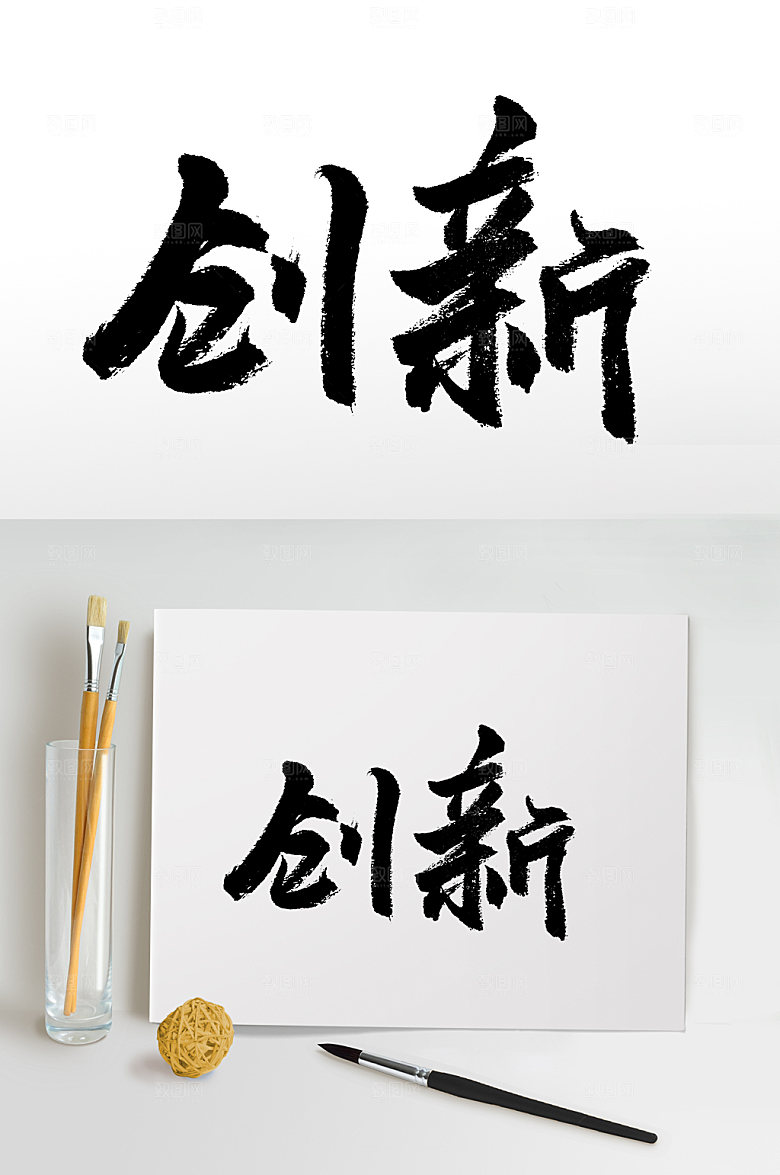 创新
创新